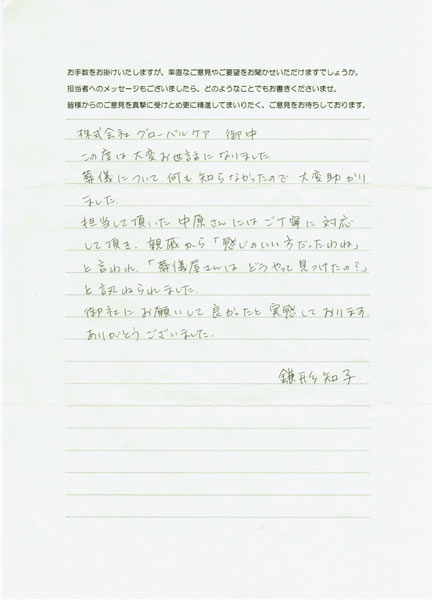 お手数をお掛けいたしますが、率直なご意見やご要望をお聞かせいただけますでしょうか。
担当者へのメッセージもございましたら、どのようなことでもお書きくださいませ。
皆様からのご意見を真摯に受けとめ更に精進してまいりたく、ご意見をお待ちしております。
株式会社グローバルケア 御中
この度は大変お世話になりました
葬儀について何も知らなかったので大変助かり
ました.
担当して頂いた中原さんにはご丁寧に対応
して頂き、親戚から「感じのいい方だったわね」
と言われ、「葬儀屋さんは どうやって見つけたの?」
と訊ねられました.
御社にお願いして良かったと実感しております.
ありがとうございました.
鎌形知子.